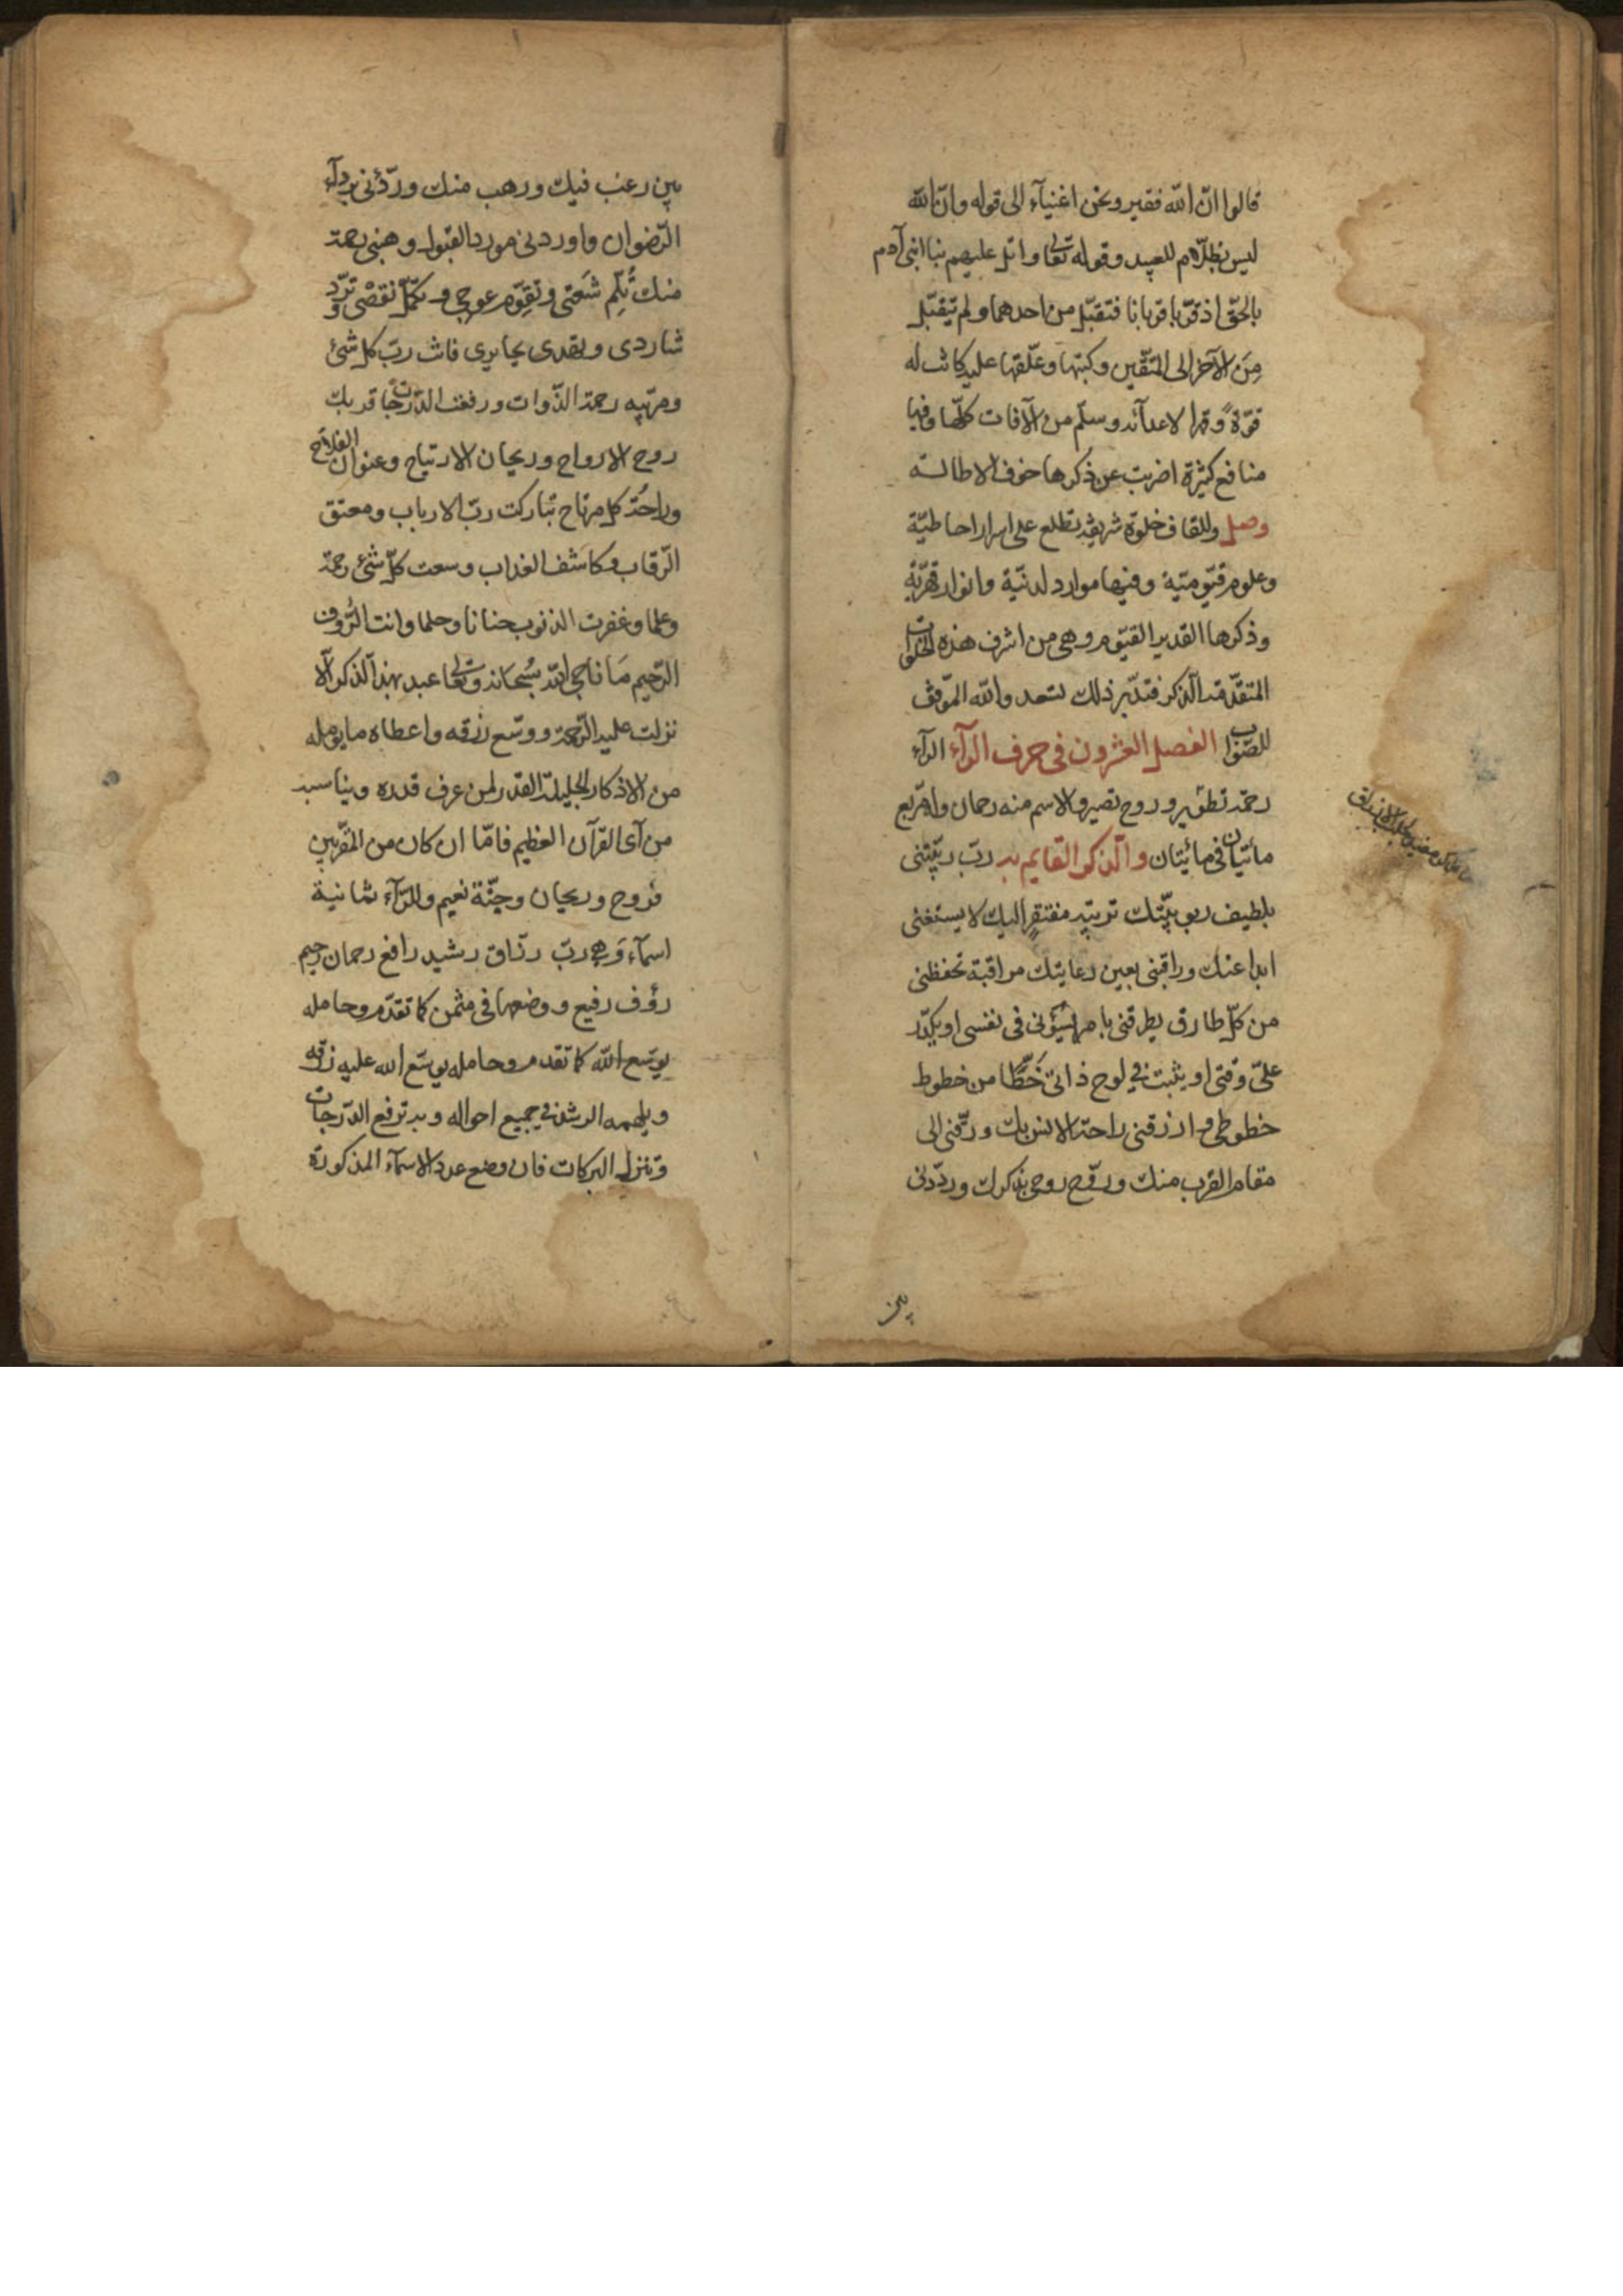 قالوا انّ الله فقير ونحن اغنيآء الى قوله وانّ الله
ليس بظلّام للعبيد وقوله تعالى واتل عليهم نبأ ابنى آدم
بالحقّ اذ قرّبا قربانا فتقبّل من احدهما ولم يتقبّل
مِنَ الآخر الى المتّقين وكتبها وعلّقها عليه كانت له
قوّة وقهرا لاعدآئه وسلم من الآفات كلّها وفيها
منافع كثيرة اضربت عن ذكرها خوف الاطالة
وصل وللقاف خلوة شريفة تطلع على اسرار احاطيّة
وعلوم قيّوميّة وفيها موارد لدنيّة وانوار قهريّة
وذكرها القدير القيّوم وهى من اشرف هذه الخلوات
المتقدّمة الذكر فتدبّر ذلك تسعد والله الموّفق
للصّواب الفصل العشرون فى حرف الرآء الرآء
رحمة تطوّير وروح تصير والاسم منه رحمان وله مربع
مائتان فى مائيتان والّذكر القايم به ربّ ربّيتنى
بلطيف ربوبيّتك تربية مفتقرٍ اليك لا يستغنى
ابدا عنك وراقبنى بعين رعايتك مراقبة تحفظنى
من كلّ طارق يطرقنى بامر يسؤنى فى نفسى او يكدّر
علىّ وقتى او يثبت فى لوح ذاتى خَطًّا من خطوط
خطوطى وارزقنى راحة الانس بك ورقّنى الى
مقام القرب منك وروّح روحى بذكرك وردّدنى
بين
بين رغب فيك ورهب منك وردّنى بردآء
الرّضوان واوردنى مورد القبول وهبنى رحمة
منك تُلِمّ شَعَثى وتقوّم عوجى وتكمّل نقصى وتردّ
شاردى وتهدى حايرى فانت ربّ كل شئ
ومربّيه رحمت الذّوات ورفعت الدّرجات قربك
روح الارواح وريحان الارتياح وعنوان الفلاح
وراحة كل مرتاح تباركت ربّ الارباب ومعتق
الرّقاب وكاشف العذاب وسعت كلّ شئ رحمة
وعلما وغفرت الذنوب حنانا وحلما وانت الرّؤف
الرّحيم مَا ناجى الله سُبحانه وتعالى عبد بهذا الذكر الّا
نزلت عليه الرّحمة ووسّع رزقه واعطاه ما يؤمله
من الاذكار الجليلة القدر لمن عرف قدره ويناسبه
من آى القرآن العظيم فامّا ان كان من المقرّبين
فروح وريحان وجنّة نعيم وللرّآء ثمانية
اسمآء وَهِىَ ربّ رزّاق رشيد رافع رحمان رحيم
رؤف رفيع ووضعها فى مثمن كما تقدّم وحامله
يوسّع الله كما تقدم وحامله يوسّع الله عليه رزقه
ويلهمه الرشد فى جميع احواله وبه ترفع الدّرجات
وتنزل البركات فان وضع عدد الاسمآء المذكورة